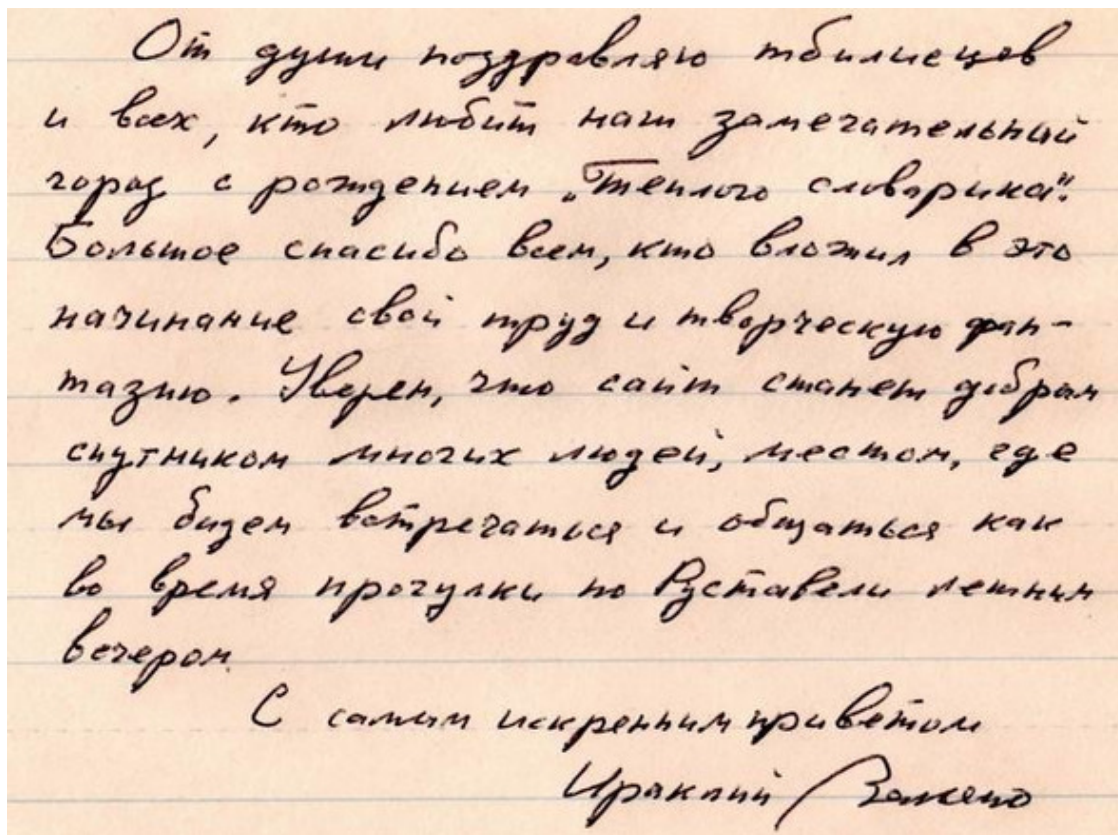 От души поздравляю тбилисцев
и всех, кто любит наш замечательный
город с рождением „Теплого словарика“.
Большое спасибо всем, кто вложил в это
начинание свой труд и творческую фан-
тазию. Уверен, что сайт станет добрым
спутником многих людей, местом, где
мы будем встречаться и общаться как
во время прогулки по Руставели летним
вечером.
С самым искренним приветом
Ираклий